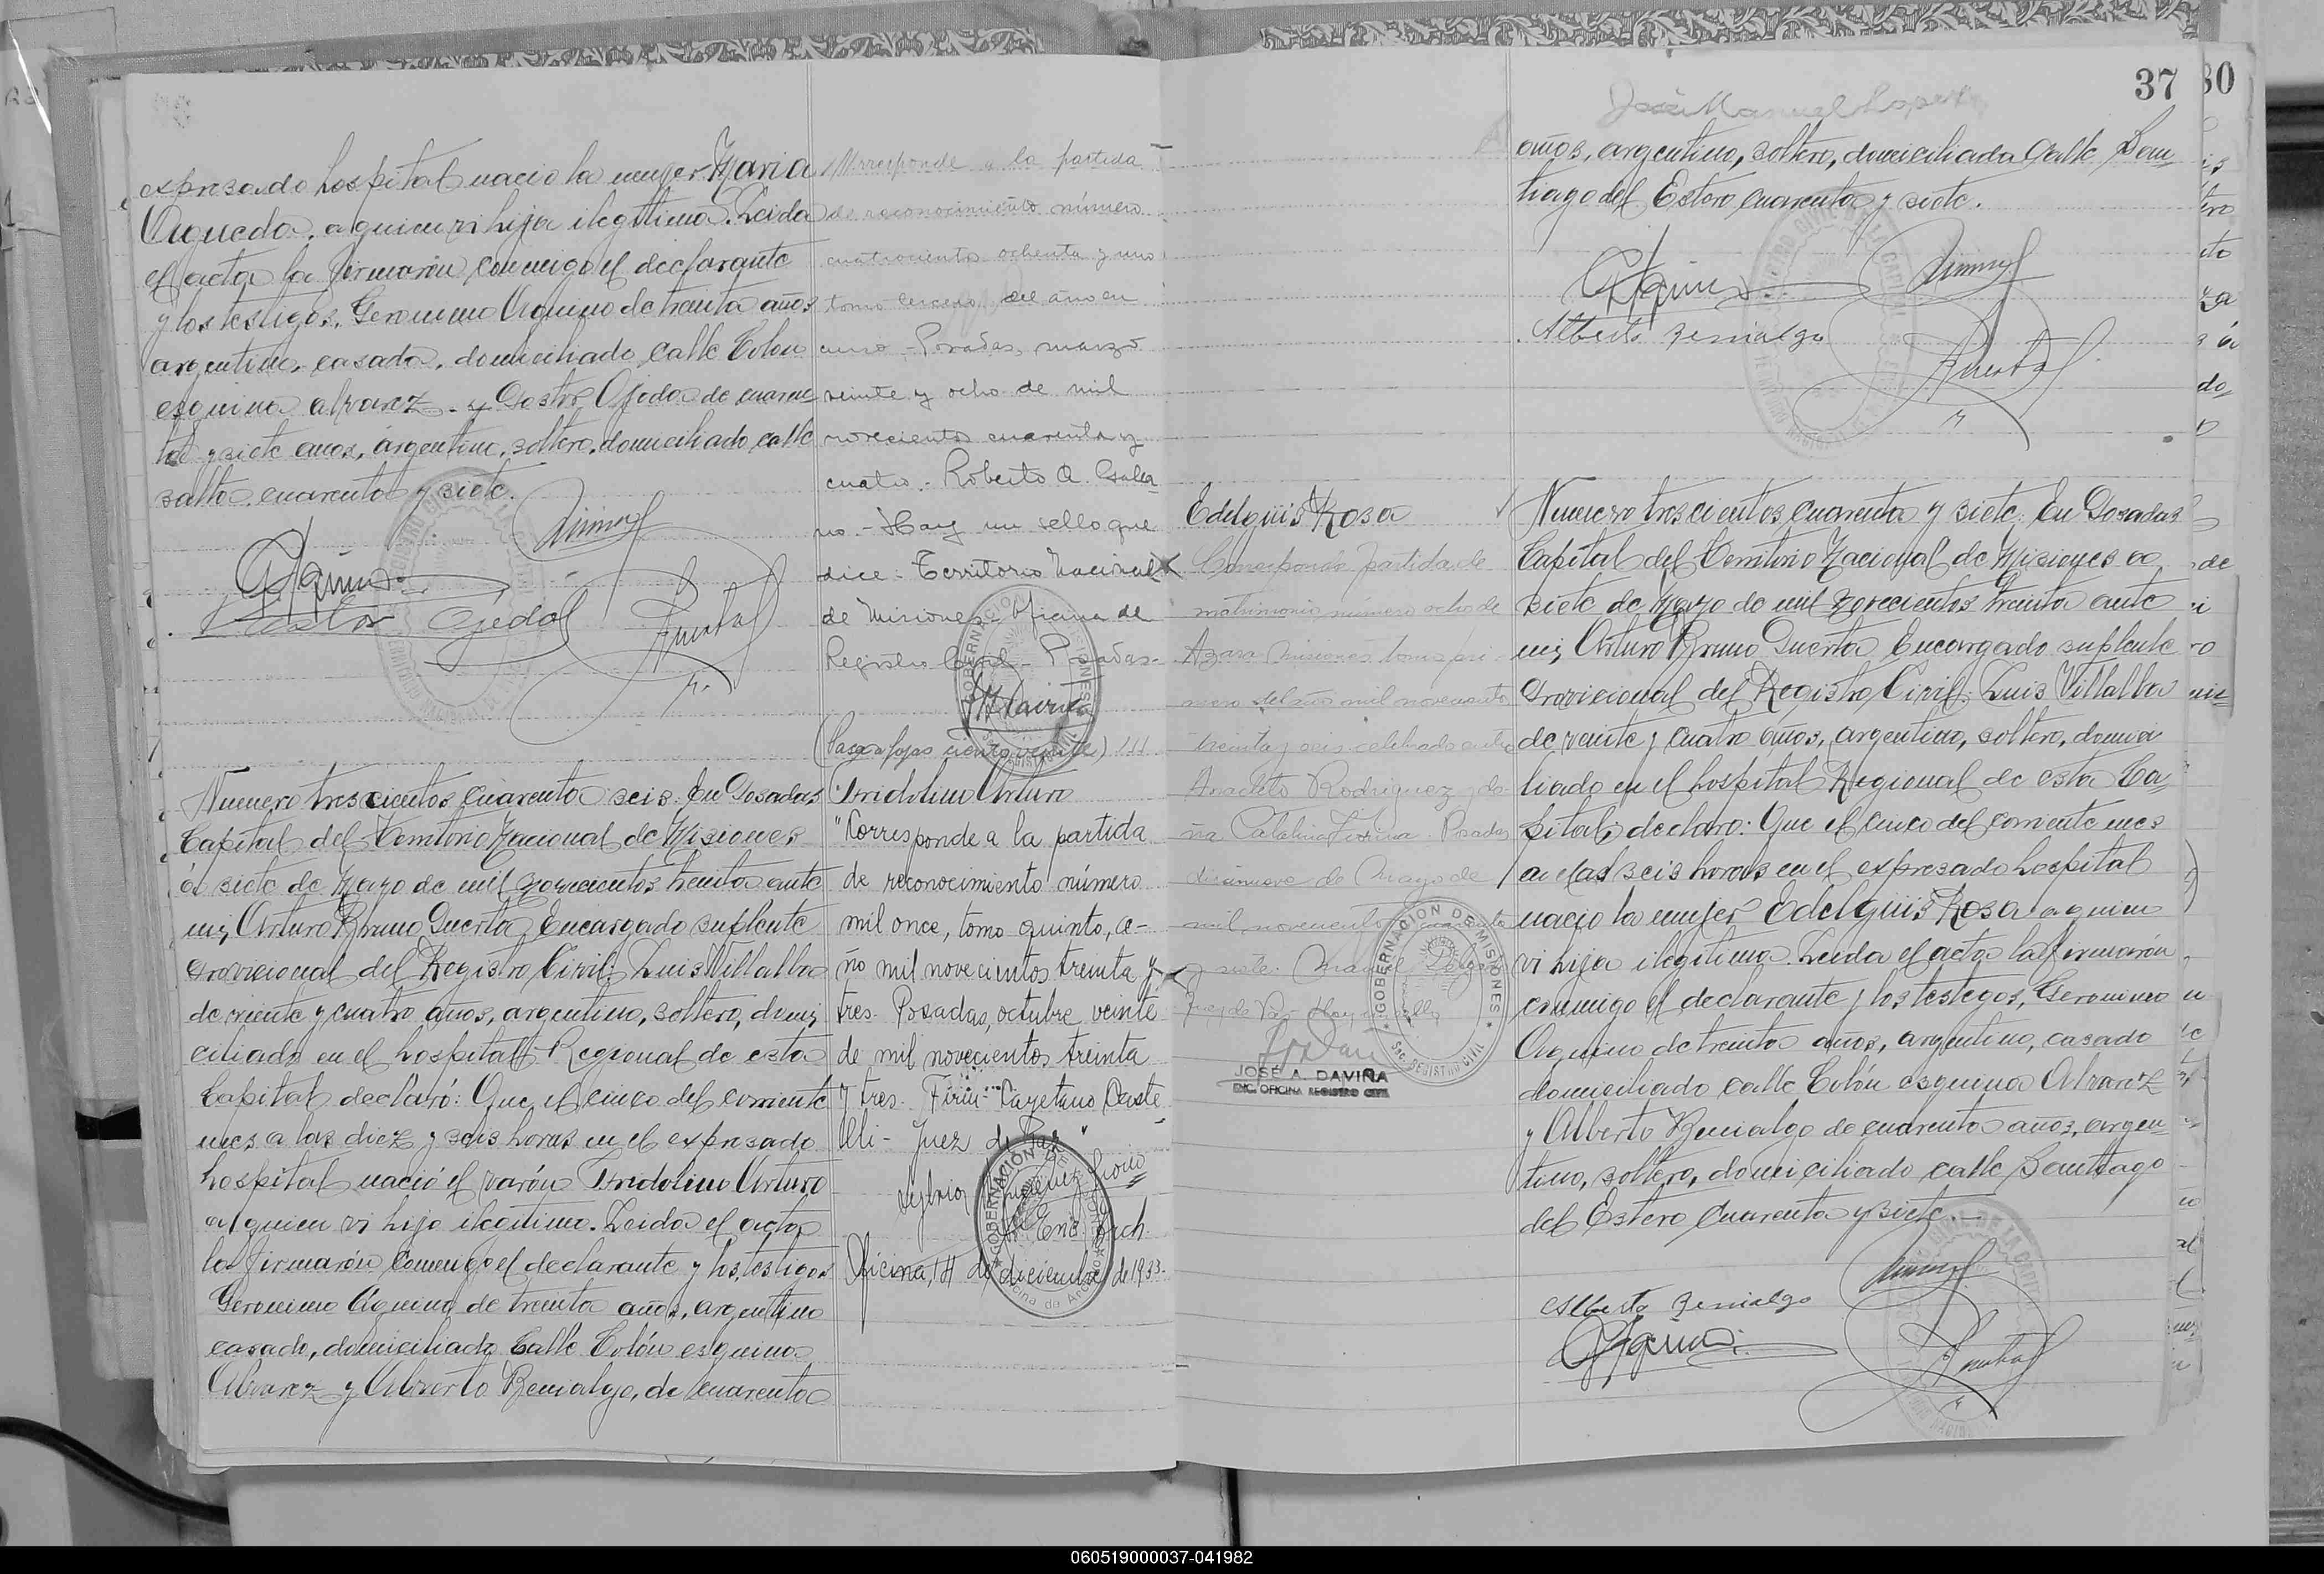 expresado hospital nacio la mujer Maria
Argueda, a quien vi hija ilegitima. Leida
el acta la firmarón conmigo el declarante
y los testigos, Geronimo Aquino de treinta años
argentino, casado, domiciliado calle Colón
esquina alvarez y Castor Ojeda de cuaren-
ta y siete años, argentino, soltero, domiciliado calle
salta cuarenta y siete.
Castor Ojeda
Corresponde a la partida
de reconocimiento número
cuatrocientos ochenta y uno
tomo tercero, del año en
curso - Posadas, marzo
veinte y ocho de mil
novecientos cuarenta y
cuatro. - Roberto A. Galea-
no - Hay un sello que
dice: Territorio Nacional
de Misiones - Oficina de
Registro Civil - Posadas -
(Pasa a fojas ciento veinte)
Numero trescientos cuarenta seis. En Posadas
Capital del Territorio Nacional de Misiones
á siete de Mayo de mil novecientos treinta ante
mi, Arturo Bruno Puerta Encargado suplente
Provicional del Registro Civil; Luis Villalba
de viente y cuatro años, argentino, soltero, domi
ciliado en el hospital Regional de esta
Capital declaró: Que el cinco del corriente
mes a las diez y seis horas en el expresado
hospital nació el varón Fridolino Arturo
a quien vi hijo ilegitimo. Leida el acta
la firmarón conmigo el declarante y los testigos
Geronimo Aquino de treinta años, argentino
casado, domiciliado Calle Colón esquina
Alvarez y Alberto Benialgo, de cuarenta
Fridolino Arturo
"Corresponde a la partida
de reconocimiento número
mil once, tomo quinto, a-
ño mil novecientos treinta y
tres. Posadas, octubre veinte
de mil novecientos treinta
y tres. Firm: Cayetano Caste
lli - Juez de Paz"
Enc. Arch.
Oficina, 14 de diciembre de 1933.
37
80
José Manuel
años, argentino, soltero, domiciliada Calle San-
tiago del Estero cuarenta y siete.
Alberto Benialgo
Edelguis Rosa
Corresponde partida de
matrimonio número ocho de
Azara Misiones tomo pri-
mero del año mil novecientos
treinta y seis celebrado entre
Anacleto Rodriguez y do-
ña Catalina Posadas
diecinueve de Mayo de
mil novecientos cuarenta
y siete. Manuel
Juez de Paz Hay un sello
GOBERNACION DE MISIONES
Sec. REGISTRO CIVIL
JOSÉ A. DAVIÑA
ENC. OFICINA REGISTRO CIVIL
Numero trescientos cuarenta y siete. En Posadas
Capital del Territorio Nacional de Misiones a
siete de Mayo de mil novecientos treinta ante
mi, Arturo Bruno Puerta Encargado suplente
Provicional del Registro Civil: Luis Villalba
de veinte y cuatro años, argentino, soltero, domici
liado en el hospital Regional de esta Ca-
pital; declaro: Que el cinco del corriente mes
a las seis horas en el expresado hospital
nacio la mujer Edelguis Rosa a quien
vi hija ilegitima. Leida el acta la firmarón
conmigo el declarante y los testegos, Geronimo
Aquino de treinta años, argentino, casado
domiciliado calle Colón esquina Alvarez
y Alberto Benialgo de cuarenta años, argen-
tino, soltero, domiciliado calle Santiago
del Estero cuarenta y siete. -
Alberto Benialgo
060519000037-041982